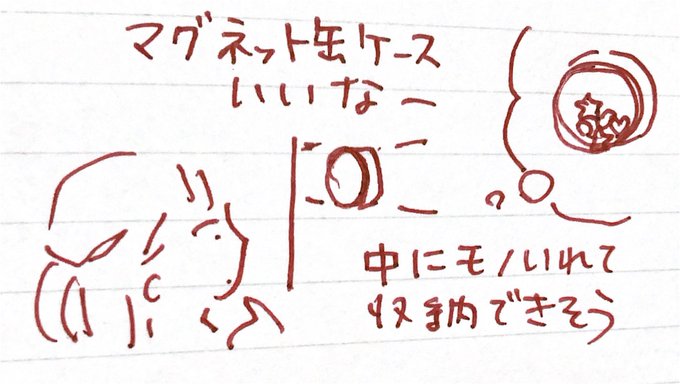 マグネット缶ケース
いいなー
中にモノいれて
収納できそう